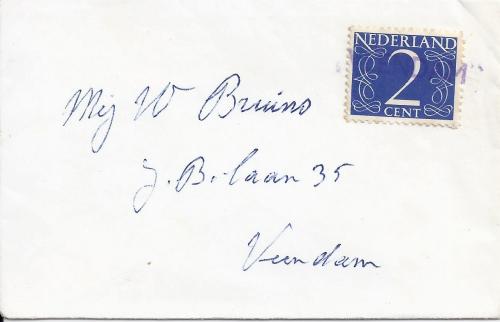 NEDERLAND
2
CENT
Mej W Bruins
J. B.-laan 35
Veendam